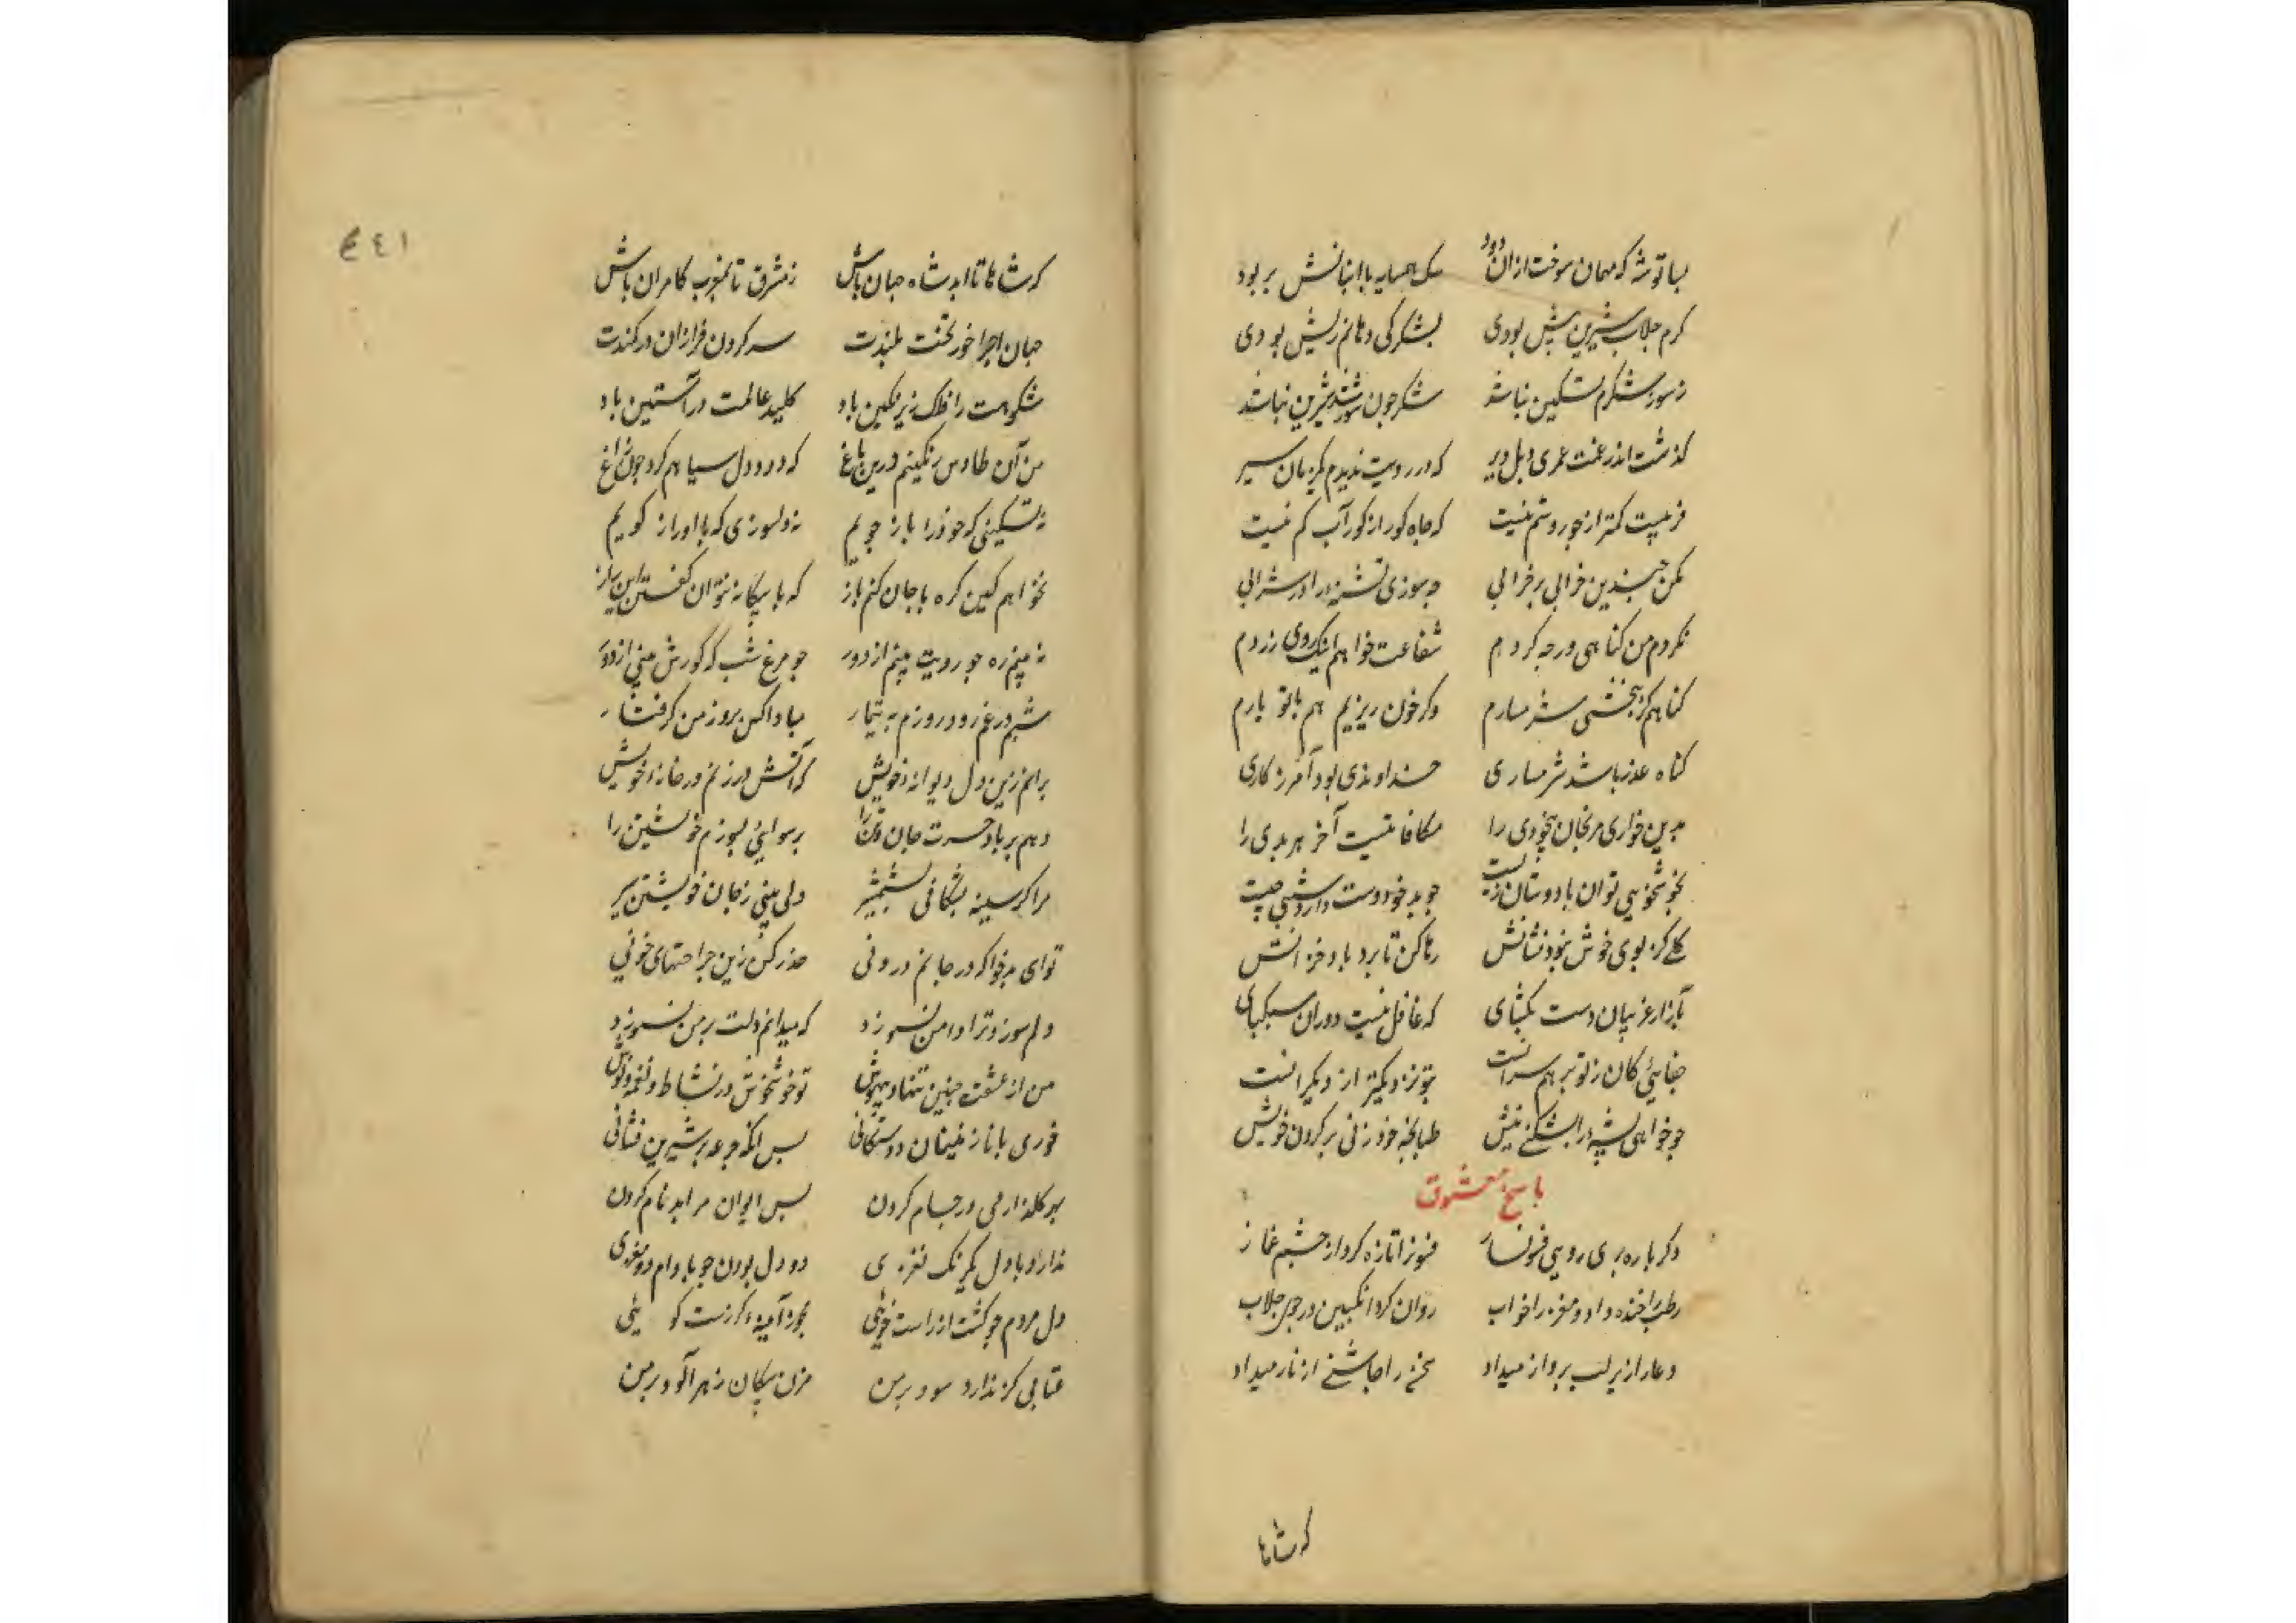 بسا توشه که مهمان سوخت ازان دود سک همسایه با انبانش بربود
کرم جلاب شیرین پیش بودی بشکر کی دهانم ریش بودی
ز سوز شکرم تسکین نباشد شکر جون سوزشد شیرین نباشد
کذشت اندر غمت عمری و بل دیر که در رویت ندیدم یکزمان سیر
فریبت کمتر از جور و ستم نیست که جاه کور از کور آب کم نیست
مکن جندین خرابی بر خرابی جه سوزی تشنه را در شرابی
نکردم من کناهی ور جه کردم شفاعت خواهم اینک روی زردم
کناهم کر ببخشی شرمسارم وکر خون ریزیم هم با تو یارم
کناه عذر باشد شرمساری خداوندی بود آمرزکاری
بدین خواری مرنجان بیخودی را مکافاتیست آخر هر بدی را
بخوشخویی توان با دوستان زیست جو بدخو دوست دارد دشمنی چیست
کلی کز بوی خوش نبود نشانش رها کن تا برد باد خزانش
بآزار غریبان دست مکشای که غافل نیست دوران سبکپای
جفایی کان ز تو بر همسرانست بتو نزدیکتر از دیکرانست
جو خواهی پشه را بشکنی نیش طبانجه خود زنی بر کردن خویش
باسخ معشوق
دکرباره پری روی فسونساز فسونرا تازه کرد از جشم غماز
رطب را خنده داد و مغز را خواب روان کرد انکبین در جوی جلاب
دعا را زیر لب برواز میداد سخن را جاشنی از ناز میداد
که شاها
۱٤۶
که شاها تا ابد شاه جهان باش ز مشرق تا بمغرب کامران باش
جهان اجرا خور تخت بلندت سر کردن فرازان در کمندت
شکوهت را فلک زیر نکین باد کلید عالمت در آستین باد
من آن طاوس رنکینم درین باغ که دود دل سیاهم کرد جون زاغ
نه تسکینی که خود را باز جویم نه دلسوزی که با او راز کویم
نخواهم کین کره با جان کنم باز که با بیکانه نتوان کفتن این راز
نه بینم ره جو رویت بینم از دور جو مرغ شب که کورش بینی از نور
شبم در غم رود روزم به تیمار مبادا کس بروز من کرفتار
برانم زین دل دیوانه خویش که آتش در زنم در خانه خویش
دهم بر باد حسرت جان و تن را برسوایی بسوزم خویشتن را
مرا کر سینه بشکافی بشمشیر دلی بینی ز جان خویشتن سیر
تو ای بدخو که در جانم درونی حذر کن زین جراحتهای خونی
دلم سوزد ترا دامن نسوزد که میدانم دلت بر من نسوزد
من از عشقت جنین تنها و بیهوش تو خوشخوش در نشاط و نغمه و نوش
خوری با نازنینان دوستکانی بس انکه جرعه بر شیرین فشانی
بهر کلذار می در جام کردن بس ایوان مرا بدنام کردن
ندارد با دل یکرنک نغزی دو دل بودن جو بادام دو مغزی
دل مردم جو کشت از راست خویی بجز آینه کژ نیست کویی
عتابی کز ندارد سود بر من مزن بیکان زهرآلود بر من